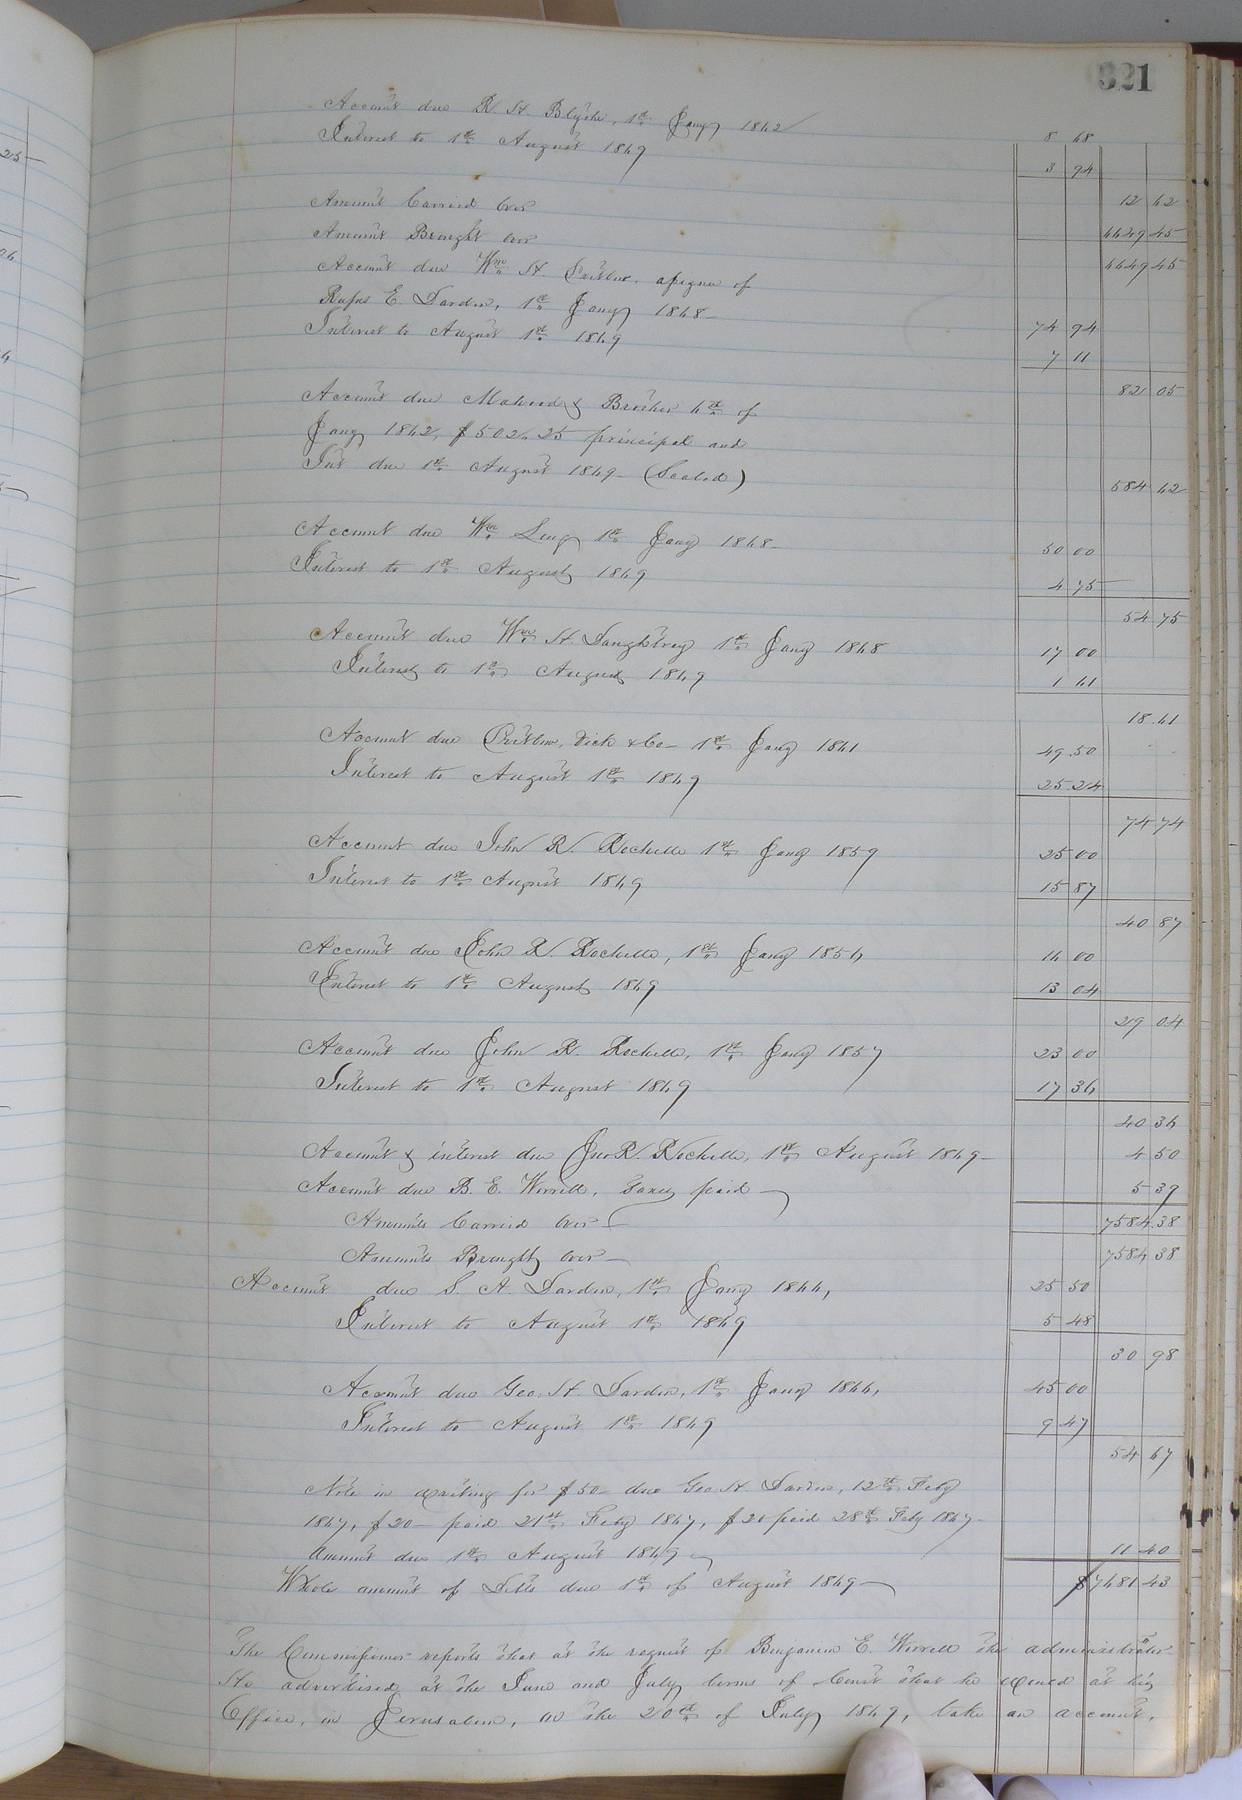 321
Account due R. H. Blythe, 1st Jany 1862 8 68
Interest to 1st August 1869 3 94
Amount Carried Over 12 62
Amount Brought Over 6649 45
6649 45
Account due Wm H. Pretlow, assignee of
Rufus E. Darden, 1st Jany 1868 74 94
Interest to August 1st 1869 7 11
82 05
Account due Mahood & Brother 6th of
Jany 1862, $502.25 principal and
Int due 1st August 1869 (Scaled) 584 62
Account due Wm Long 1st Jany 1868 50 00
Interest to 1st August 1869 4 75
54 75
Account due Wm H. Daughtrey 1st Jany 1868 17 00
Interest to 1st August 1869 1 61
18.61
Account due Pretlow, Rick & Co 1st Jany 1861 49.50
Interest to August 1st 1869 25.24
74.74
Account due John R. Rochelle 1st Jany 1859 25 00
Interest to 1st August 1869 15 87
40 87
Account due John R. Rochelle, 1st Jany 1856 16 00
Interest to 1st August 1869 13 04
29 04
Account due John R. Rochelle, 1st Jany 1857 23 00
Interest to 1st August 1869 17 36
40 36
Account & interest due Jno R. Rochelle, 1st August 1869 4 50
Account due B. E. Worrell, Taxes paid 5 39
Amounts Carried Over 7584.38
Amounts Brought Over 7584 38
Account due S. A. Darden, 1st Jany 1866, 25 50
Interest to August 1st 1869 5 48
30 98
Account due Geo. H. Darden, 1st Jany 1866, 45 00
Interest to August 1st 1869 9 67
54 67
Note in writing for $50 due Geo H Darden, 12th Feby
1867, $20 paid 21st Feby 1867, $20 paid 28th Feby 1867
Amount due 1st August 1869 11 40
Whole amount of Debts due 1st of August 1869 $7681 43
The Commissioner reports that at the request of Benjamin E. Worrell the administrator
He advertised at the June and July terms of Court that he would at his
Office, in Jerusalem, on the 20th of July 1869, take an account,